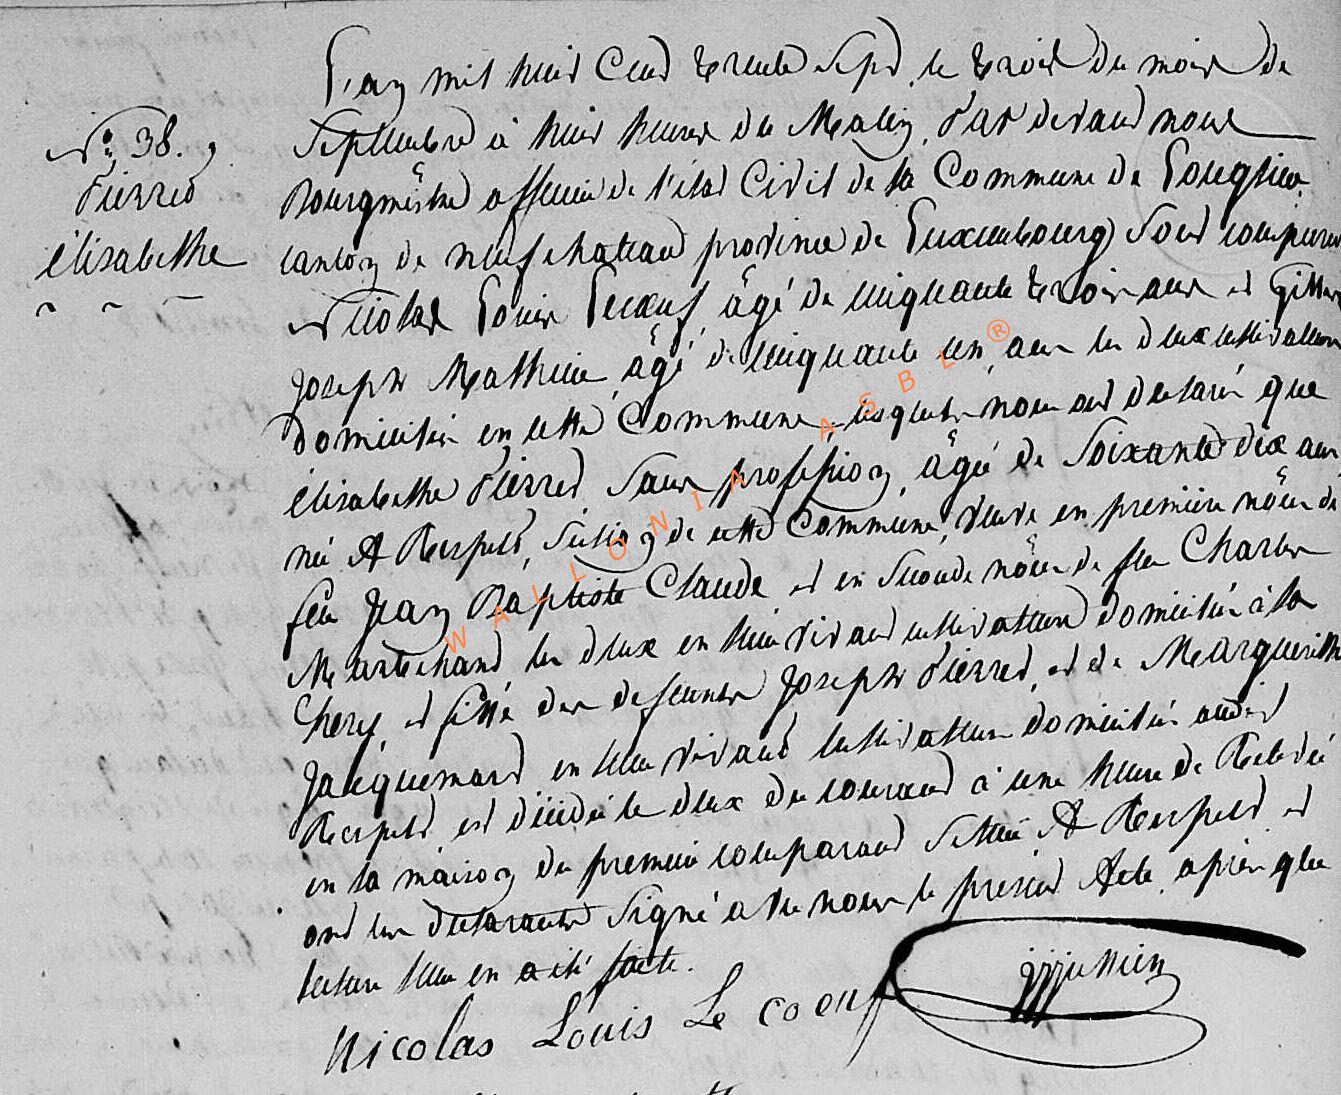 N° 38.
Pierred
élisabethe
L'an mil huit Cent trente sept, le trois du mois de
Septembre à huit heures du Matin, Par devant nous
Bourgmêstre officier de l'état Civil de la Commune de Longlier
canton de neufchateau province de Luxembourg) Sont comparus
Nicolas Louis Lecoeuf âgé de cinquante trois ans et
Joseph Mathieu âgé de cinquante un ans les deux cultivateurs
domiciliés en cette Commune, lesquels nous ont déclaré que
élisabethe Pierred, Sans profession, âgée de Soixante dix ans
née A Respelt, Section de cette Commune, veuve en première nôce de
feu Jean Baptiste Claude et en Seconde nôce de feu Charles
Marechand les deux en leur vivant cultivateurs domiciliés à la
et fille des defeunts Joseph Pierred, et de Marguerithe
Jacquemard en leur vivant cultivateurs domiciliés audit
Respelt est décédée le deux du courant à une heure de
en la maison du premier comparant Située A Respelt et
ont les déclarants Signé avec nous le présent Acte, après que
lecture leur en a été faite.
Nicolas Louis Le coeuf
WALLONIA ASBL ®